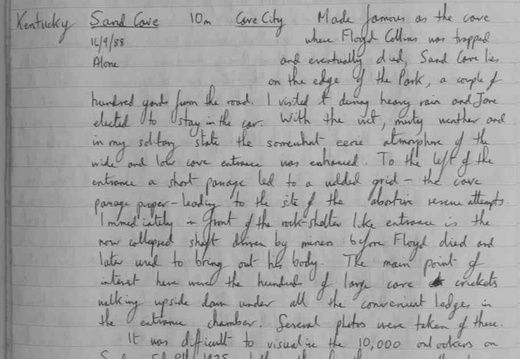 Kentucky Sand Cave 10m Cave City Made famous as the cave
14/9/88 where Floyd Collins was trapped
Alone and eventually died, Sand Cave lies
on the edge of the Park, a couple of
hundred yards from the road. I visited it during heavy rain and Jane
elected to stay in the car. With the wet, misty weather and
in my solitary state the somewhat eerie atmosphere of the
wide and low cave entrance was enhanced. To the left of the
entrance a short passage led to a welded grid - the cave
passage proper - leading to the site of the abortive rescue attempts.
Immediately in front of the rock-shelter like entrance is the
now collapsed shaft driven by miners before Floyd died and
later used to bring out his body. The main point of
interest here were the hundreds of large cave crickets
walking upside down under all the convenient ledges in
the entrance chamber. Several photos were taken of these.
It was difficult to visualize the 10,000 onlookers on